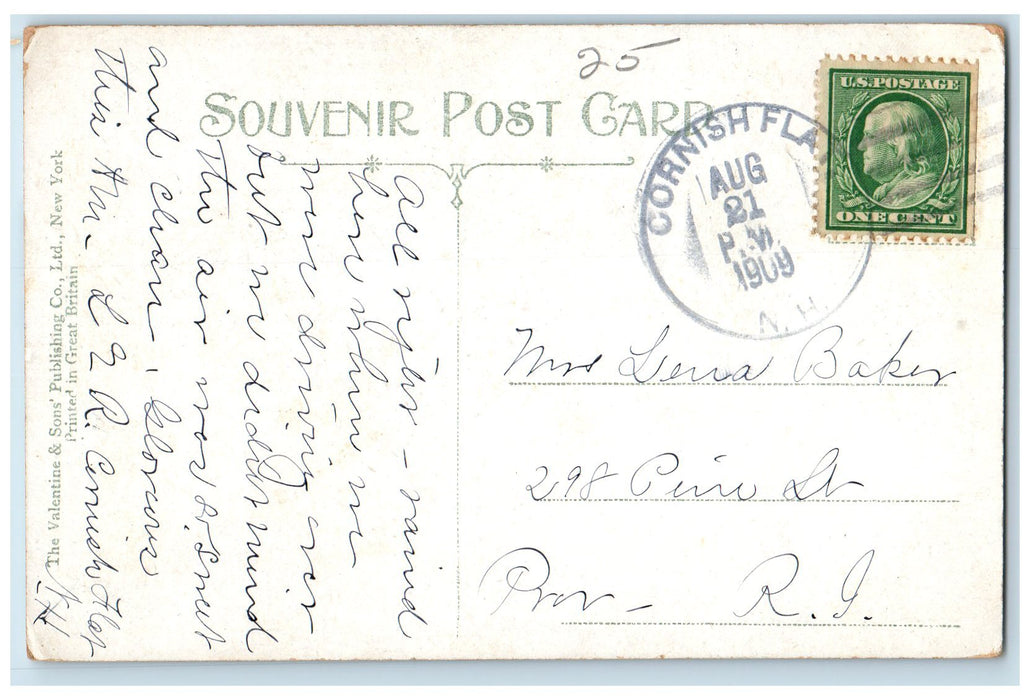 25
SOUVENIR POST CARD
U.S. POSTAGE
ONE CENT
CORNISH FLA
AUG
21
P.M
1909
N.H
All right - rained
here when we
were driving over
but we didn't mind
The air was so sweet
and clean. Glorious
this A.M. L E R. Cornish Flat
N.H
Mrs Lena Baker
298 Pine St
Prov - R.I.
The Valentine & Sons' Publishing Co., Ltd., New York
Printed in Great Britain